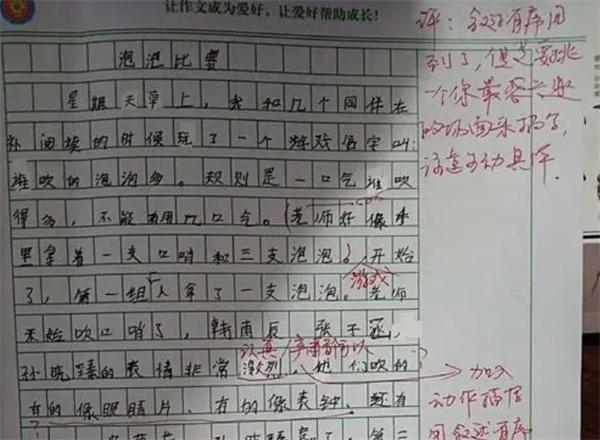 让作文成为爱好、让爱好帮助成长!
泡泡比赛
星期天早上,我和几个同伴在
补阅读的时候玩了一个游戏名字叫:
谁吹的泡泡多。规则是一口气谁吹
得多,不能用几口气。(老师好像手
里拿着一支口哨和三支泡泡)开始
游戏
了,第一组人拿了一支泡泡。老师
开始吹口哨了,韩雨辰,张子涵,
认真
孙晓臻的表情非常激烈,他们吹的
有的像眼睛片、有的像表钟、还有
评:叙述有序
到了,但是要挑
一个你最感兴趣
的场面来描写,
这篇
加入
动作描写
叙述有序